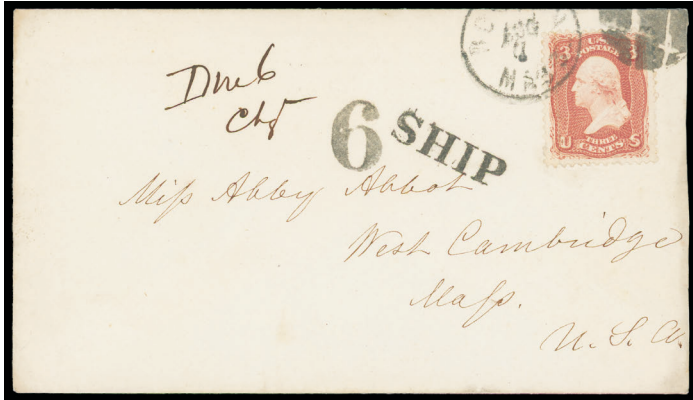 AUG
3 U.S. 3
POSTAGE
U THREE S
CENTS
Due 6
6 SHIP
Miss Abby Abbot
West Cambridge
Mass.
U. S. A.